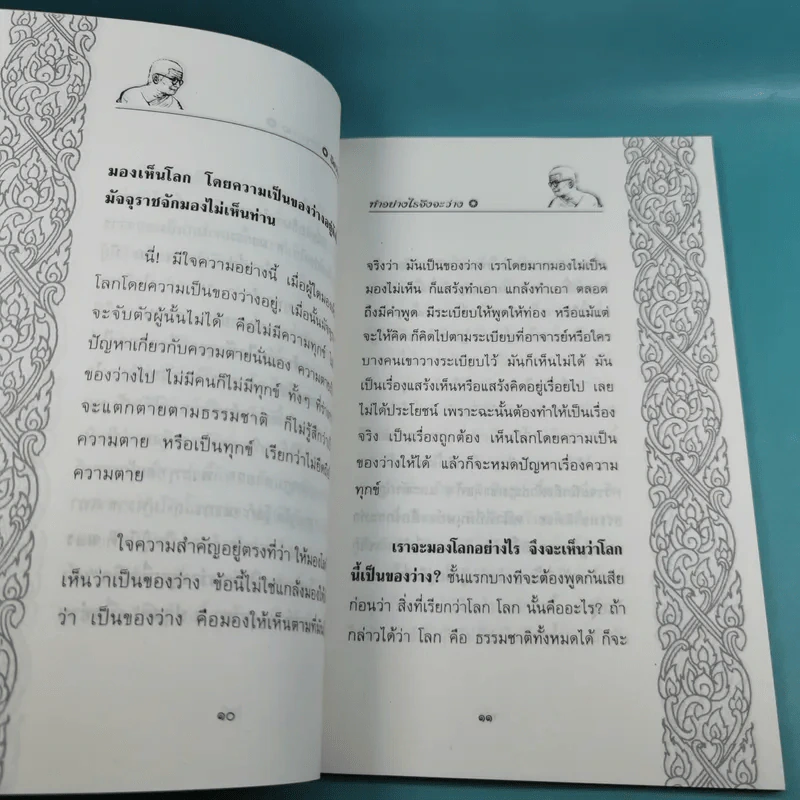 มองเห็นโลก โดยความเป็นของว่างอยู่
มัจจุราชจักมองไม่เห็นท่าน
นี่! มีใจความอย่างนี้ เมื่อผู้ใดมอง
โลกโดยความเป็นของว่างอยู่, เมื่อนั้น
จะจับตัวผู้นั้นไม่ได้ คือไม่มีความทุกข์
ปัญหาเกี่ยวกับความตายนั่นเอง ความตาย
ของว่างไป ไม่มีคนก็ไม่มีทุกข์ ทั้งๆ ที่
จะแตกตายตามธรรมชาติ ก็ไม่รู้สึกว่า
ความตาย หรือเป็นทุกข์ เรียกว่าไม่
ความตาย
ใจความสำคัญอยู่ตรงที่ว่า ให้มอง
เห็นว่าเป็นของว่าง ข้อนี้ไม่ใช่แกล้งมอง
ว่า เป็นของว่าง คือมองให้เห็นตามที่
๑๐
ทำอย่างไรจึงจะว่าง
จริงว่า มันเป็นของว่าง เราโดยมากมองไม่เป็น
มองไม่เห็น ก็แสร้งทำเอา แกล้งทำเอา ตลอด
ถึงมีคำพูด มีระเบียบให้พูดให้ท่อง หรือแม้แต่
จะให้คิด ก็คิดไปตามระเบียบที่อาจารย์หรือใคร
บางคนเขาวางระเบียบไว้ มันก็เห็นไม่ได้ มัน
เป็นเรื่องแสร้งเห็นหรือแสร้งคิดอยู่เรื่อยไป เลย
ไม่ได้ประโยชน์ เพราะฉะนั้นต้องทำให้เป็นเรื่อง
จริง เป็นเรื่องถูกต้อง เห็นโลกโดยความเป็น
ของว่างให้ได้ แล้วก็จะหมดปัญหาเรื่องความ
ทุกข์
เราจะมองโลกอย่างไร จึงจะเห็นว่าโลก
นี้เป็นของว่าง? ชั้นแรกบางทีจะต้องพูดกันเสีย
ก่อนว่า สิ่งที่เรียกว่าโลก โลก นั้นคืออะไร? ถ้า
กล่าวได้ว่า โลก คือ ธรรมชาติทั้งหมดได้ ก็จะ
๑๑